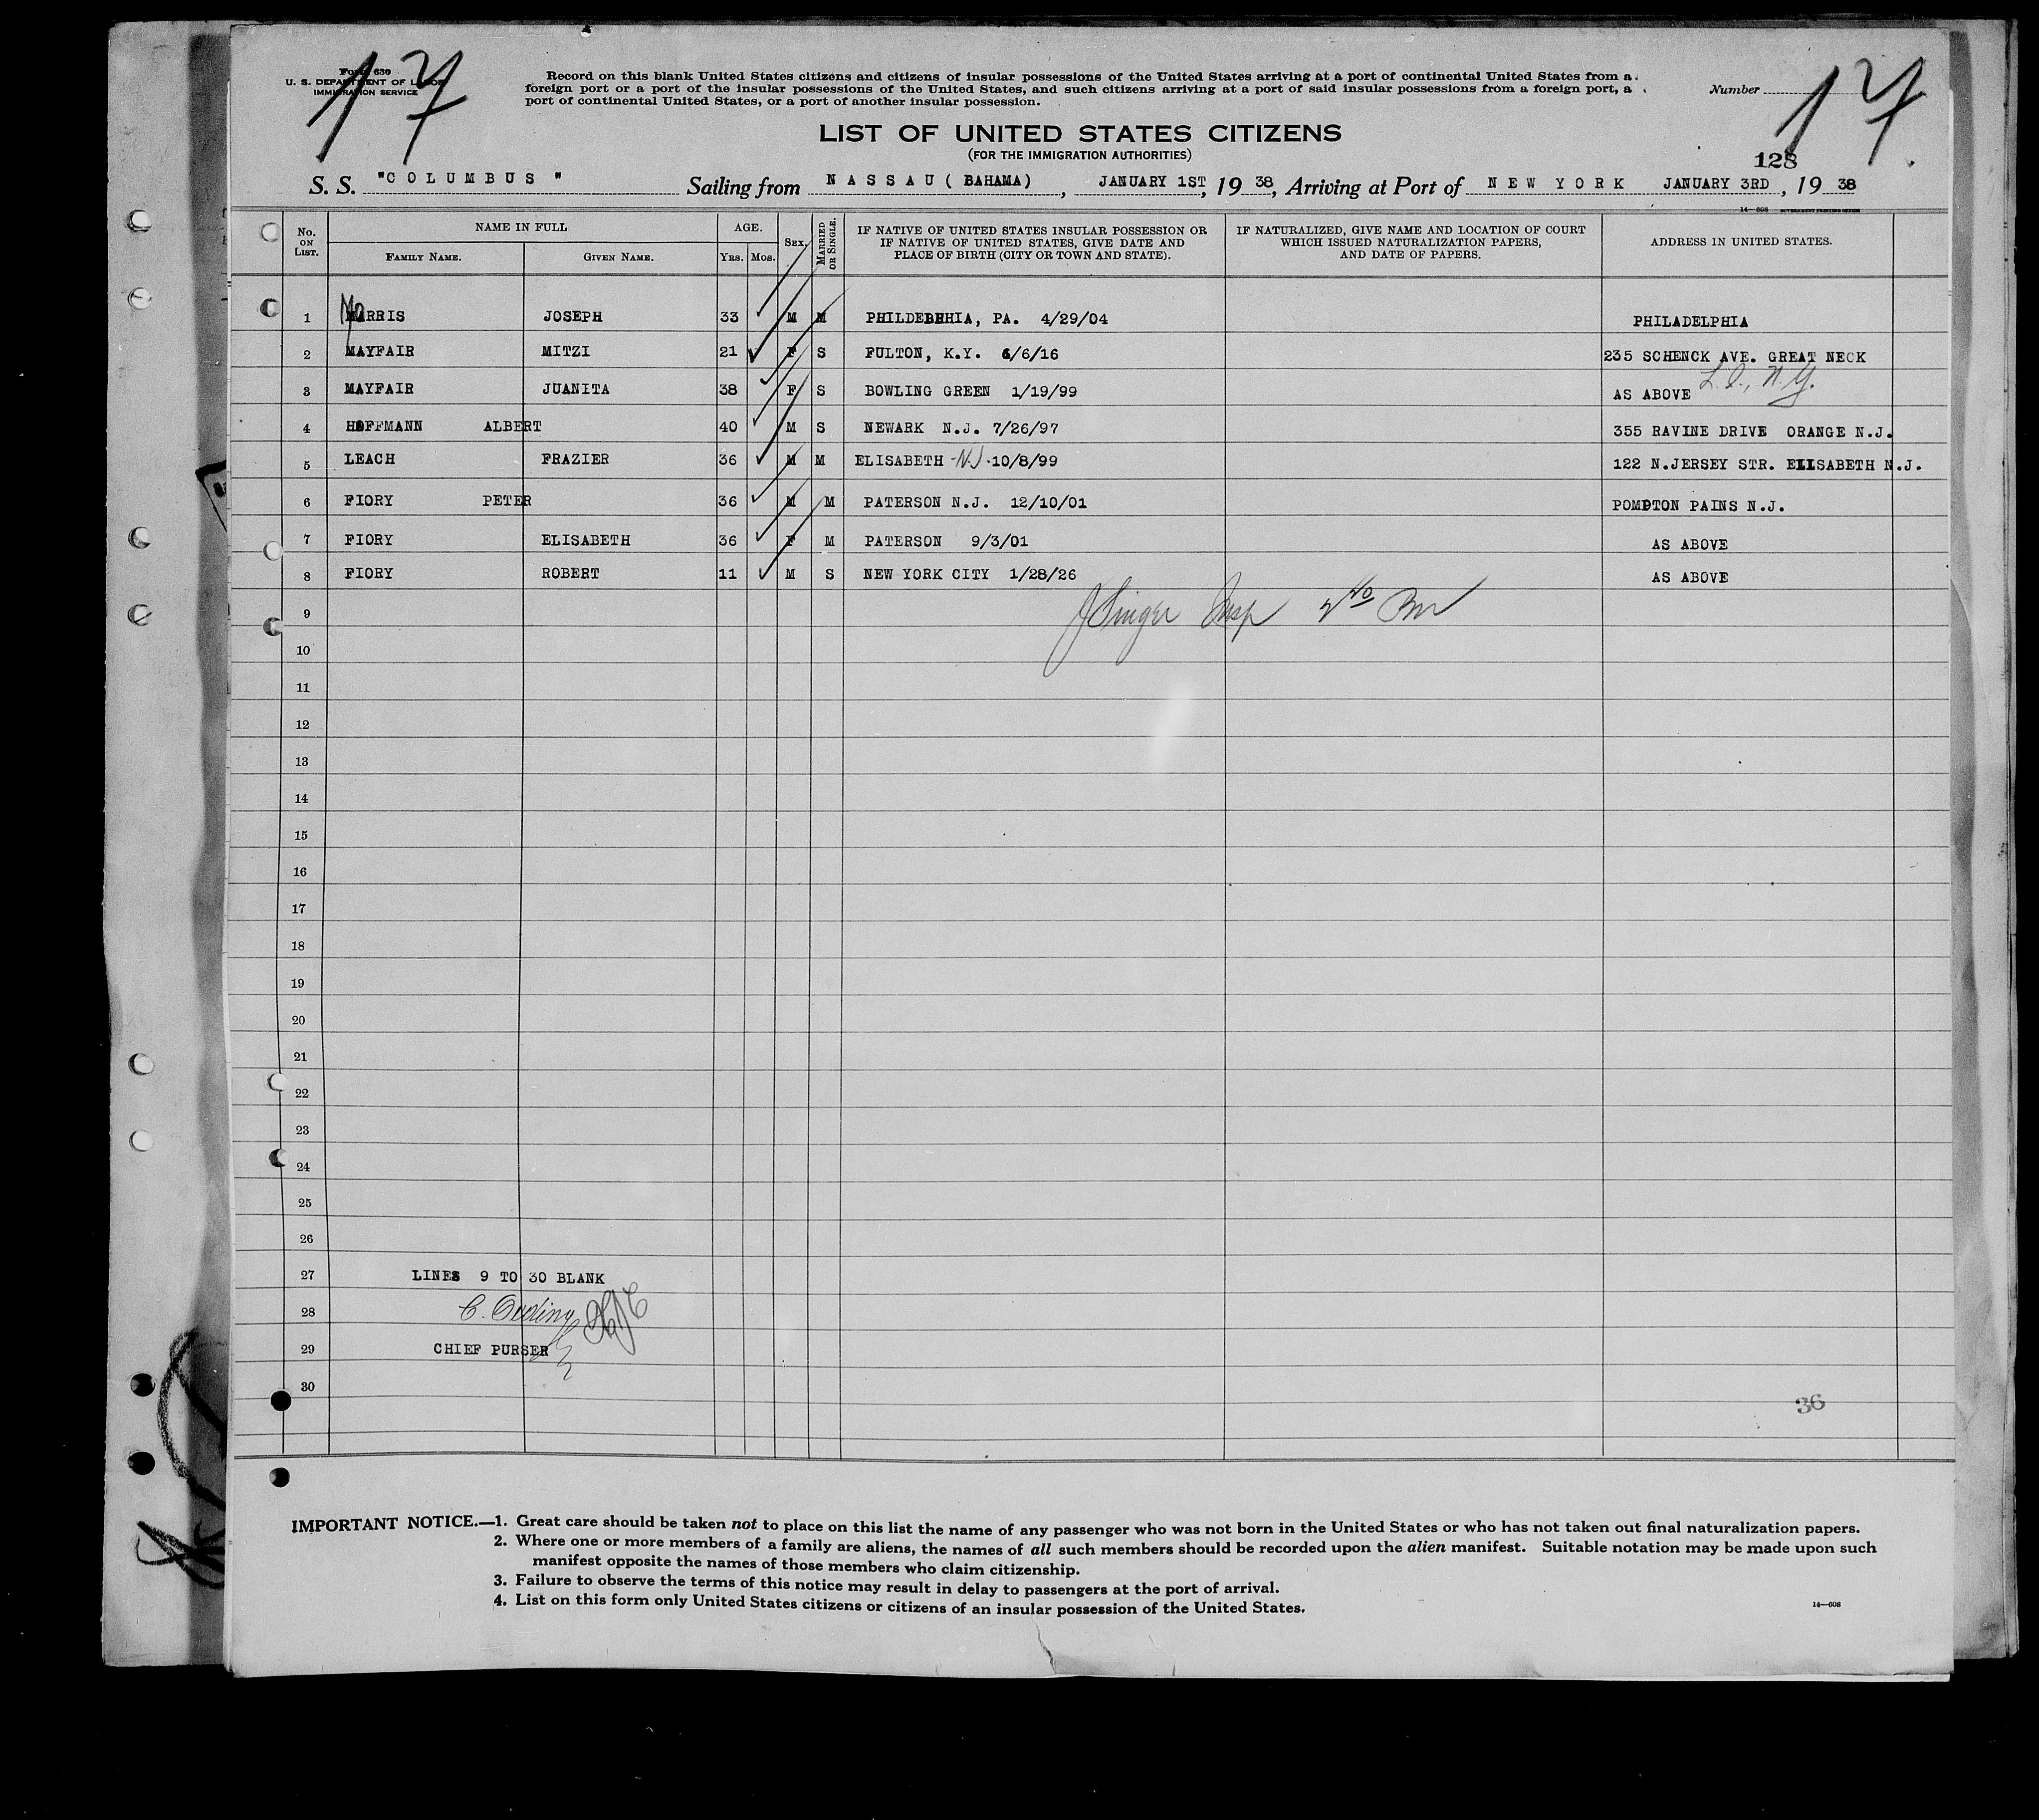 17
17
Form 630
U. S. DEPARTMENT OF LABOR
IMMIGRATION SERVICE
Record on this blank United States citizens and citizens of insular possessions of the United States arriving at a port of continental United States from a
foreign port or a port of the insular possessions of the United States, and such citizens arriving at a port of said insular possessions from a foreign port, a
port of continental United States, or a port of another insular possession.
Number
LIST OF UNITED STATES CITIZENS
(FOR THE IMMIGRATION AUTHORITIES)
128
S. S. "COLUMBUS" Sailing from NASSAU ( BAHAMA) , JANUARY 1ST, 19 38, Arriving at Port of NEW YORK JANUARY 3RD , 19 38
14—608 GOVERNMENT PRINTING OFFICE
No. ON LIST. NAME IN FULL FAMILY NAME. GIVEN NAME. AGE. YRS. MOS. SEX. MARRIED OR SINGLE. IF NATIVE OF UNITED STATES INSULAR POSSESSION OR IF NATIVE OF UNITED STATES, GIVE DATE AND PLACE OF BIRTH (CITY OR TOWN AND STATE). IF NATURALIZED, GIVE NAME AND LOCATION OF COURT WHICH ISSUED NATURALIZATION PAPERS, AND DATE OF PAPERS. ADDRESS IN UNITED STATES.
1 MORRIS JOSEPH 33 M M PHILDEBHHIA, PA. 4/29/04 PHILADELPHIA
2 MAYFAIR MITZI 21 F S FULTON, K.Y. 6/6/16 235 SCHENCK AVE. GREAT NECK
L.I., N.Y.
3 MAYFAIR JUANITA 38 F S BOWLING GREEN 1/19/99 AS ABOVE
4 HOFFMANN ALBERT 40 M S NEWARK N.J. 7/26/97 355 RAVINE DRIVE ORANGE N.J.
5 LEACH FRAZIER 36 M M ELISABETH -N.J.-10/8/99 122 N.JERSEY STR. ELISABETH N.J.
6 FIORY PETER 36 M M PATERSON N.J. 12/10/01 POMPTON PAINS N.J.
7 FIORY ELISABETH 36 F M PATERSON 9/3/01 AS ABOVE
8 FIORY ROBERT 11 M S NEW YORK CITY 1/28/26 AS ABOVE
9 J Singer Insp
10
11
12
13
14
15
16
17
18
19
20
21
22
23
24
25
26
27 LINES 9 TO 30 BLANK
28
29 CHIEF PURSER
30
36
IMPORTANT NOTICE.—1. Great care should be taken not to place on this list the name of any passenger who was not born in the United States or who has not taken out final naturalization papers.
2. Where one or more members of a family are aliens, the names of all such members should be recorded upon the alien manifest. Suitable notation may be made upon such
manifest opposite the names of those members who claim citizenship.
3. Failure to observe the terms of this notice may result in delay to passengers at the port of arrival.
4. List on this form only United States citizens or citizens of an insular possession of the United States.
14—608